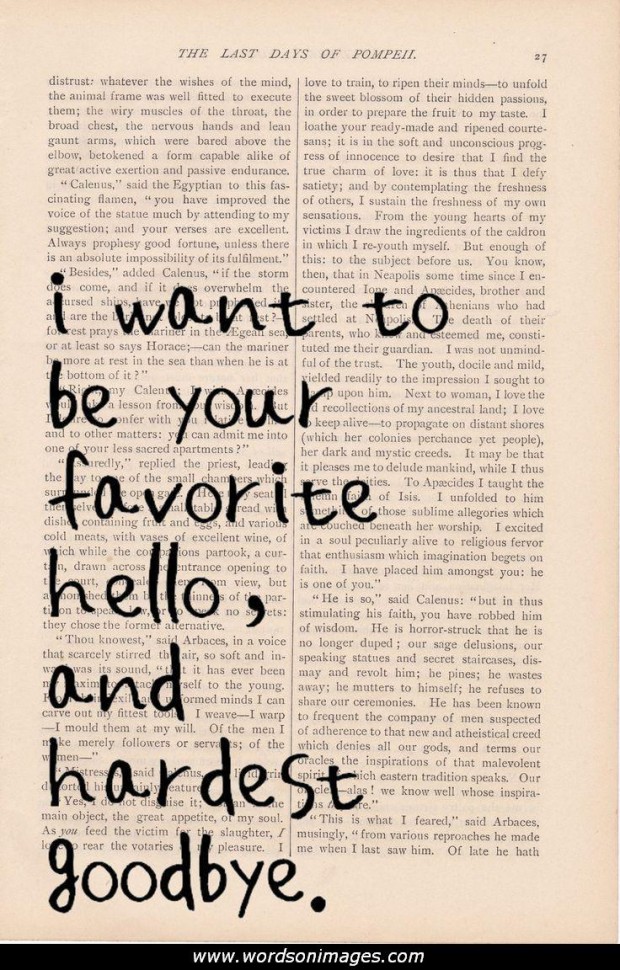 THE LAST DAYS OF POMPEII.
27
distrust: whatever the wishes of the mind,
the animal frame was well fitted to execute
them; the wiry muscles of the throat, the
broad chest, the nervous hands and lean
gaunt arms, which were bared above the
elbow, betokened a form capable alike of
great active exertion and passive endurance.
"Calenus," said the Egyptian to this fas-
cinating flamen, "you have improved the
voice of the statue much by attending to my
suggestion; and your verses are excellent.
Always prophesy good fortune, unless there
is an absolute impossibility of its fulfilment."
"Besides," added Calenus, "if the storm
does come, and if it overwhelm the
ships,
are the
prays mariner in the Ægean sea,
or at least so says Horace;—can the mariner
be more at rest in the sea than when he is at
the bottom of it?"
my
a lesson from
confer with
and to other matters: you can admit me into
one of your less sacred apartments?"
replied the priest, leading
the way to one of the small chambers which
containing fruit and eggs, and various
cold meats, with vases of excellent wine, of
which while the partook, a cur-
tain, drawn across entrance opening to
view, but
no secrets:
they chose the former alternative.
"Thou knowest," said Arbaces, in a voice
that scarcely stirred the air, so soft and in-
was its sound, "that it has ever been
to the young.
minds I can
carve out my fittest tools. I weave—I warp
—I mould them at my will. Of the men I
make merely followers or servants; of the
women—"
said
Yes, I do not disguise it;
main object, the great appetite, of my soul.
As you feed the victim for the slaughter, I
love to rear the votaries of my pleasure. I
love to train, to ripen their minds—to unfold
the sweet blossom of their hidden passions,
in order to prepare the fruit to my taste. I
loathe your ready-made and ripened courte-
sans; it is in the soft and unconscious prog-
ress of innocence to desire that I find the
true charm of love: it is thus that I defy
satiety; and by contemplating the freshness
of others, I sustain the freshness of my own
sensations. From the young hearts of my
victims I draw the ingredients of the caldron
in which I re-youth myself. But enough of
this: to the subject before us. You know,
then, that in Neapolis some time since I en-
countered Ione and Apæcides, brother and
sister, the of Athenians who had
settled at Neapolis. The death of their
parents, who knew and esteemed me, consti-
tuted me their guardian. I was not unmind-
ful of the trust. The youth, docile and mild,
yielded readily to the impression I sought to
upon him. Next to woman, I love the
old recollections of my ancestral land; I love
to keep alive—to propagate on distant shores
(which her colonies perchance yet people),
her dark and mystic creeds. It may be that
it pleases me to delude mankind, while I thus
serve the deities. To Apæcides I taught the
of Isis. I unfolded to him
those sublime allegories which
are couched beneath her worship. I excited
in a soul peculiarly alive to religious fervor
that enthusiasm which imagination begets on
faith. I have placed him amongst you: he
is one of you."
"He is so," said Calenus: "but in thus
stimulating his faith, you have robbed him
of wisdom. He is horror-struck that he is
no longer duped; our sage delusions, our
speaking statues and secret staircases, dis-
may and revolt him; he pines; he wastes
away; he mutters to himself; he refuses to
share our ceremonies. He has been known
to frequent the company of men suspected
of adherence to that new and atheistical creed
which denies all our gods, and terms our
oracles the inspirations of that malevolent
spirit of which eastern tradition speaks. Our
—alas! we know well whose inspira-
"This is what I feared," said Arbaces,
musingly, "from various reproaches he made
me when I last saw him. Of late he hath
i want to
be your
favorite
hello,
and
hardest
goodbye.
www.wordsonimages.com